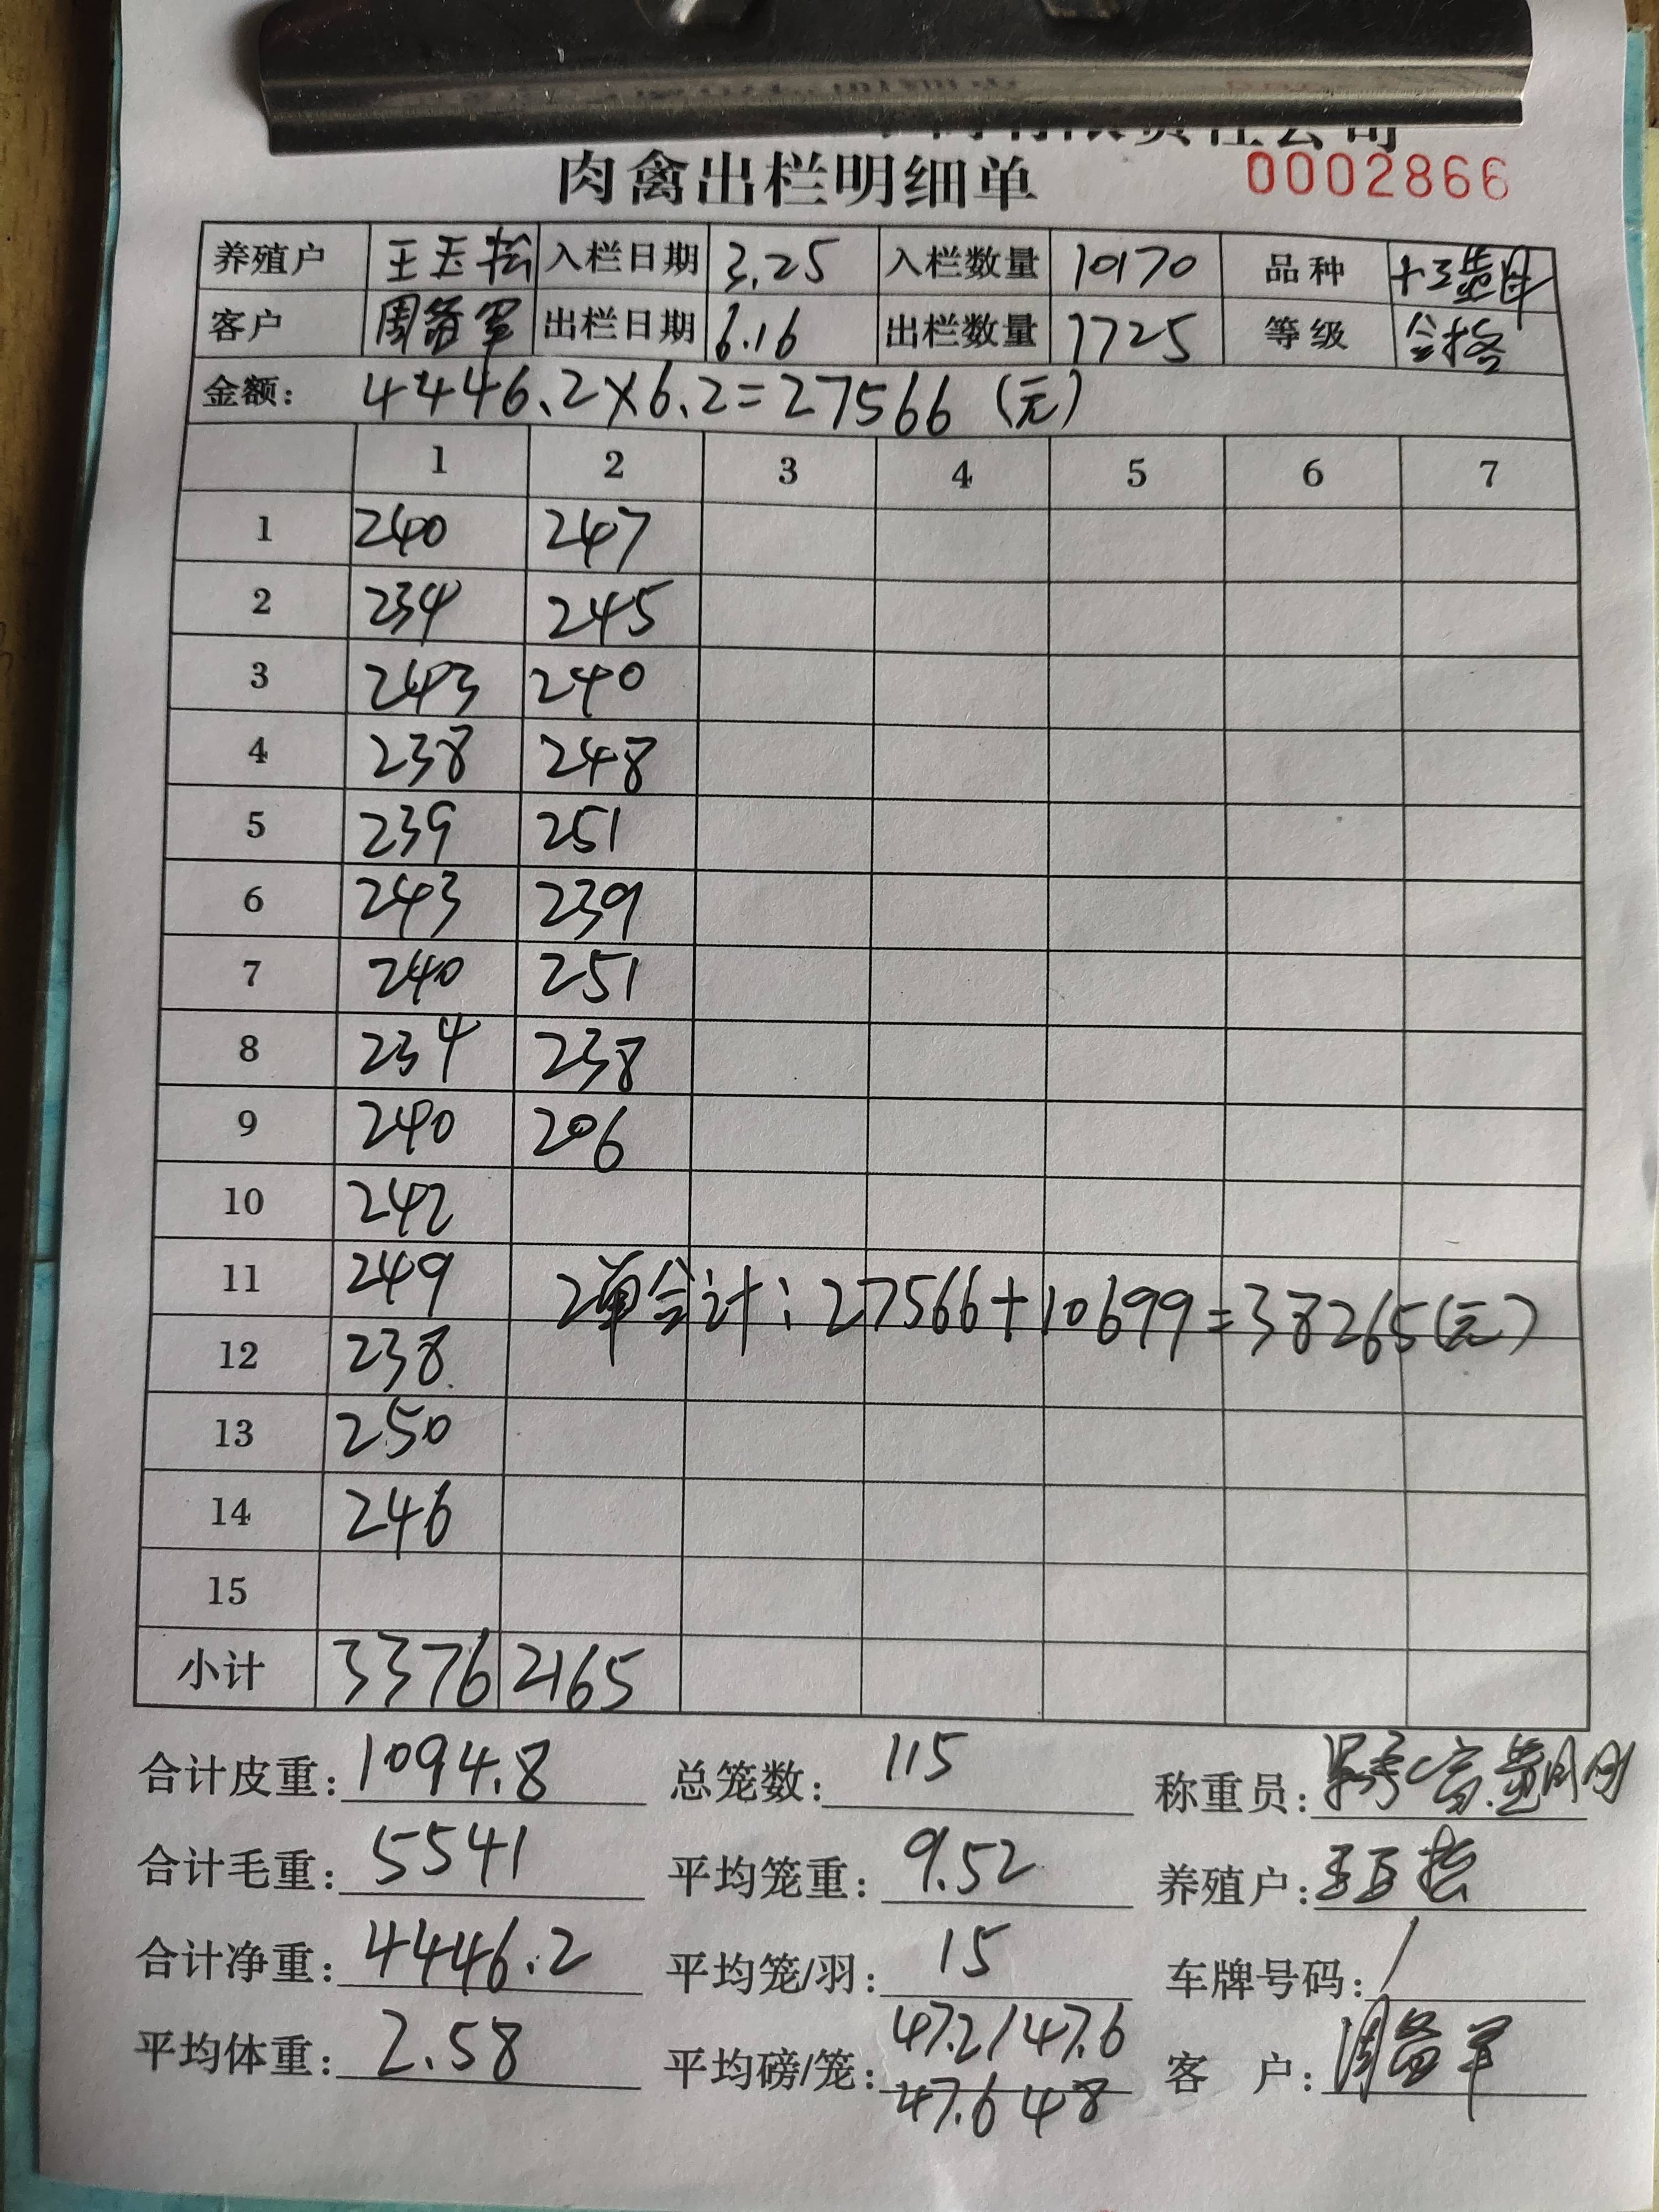 有限责任公司
肉禽出栏明细单 0002866
养殖户 王玉松 入栏日期 3.25 入栏数量 10170 品种
客户 周备军 出栏日期 6.16 出栏数量 1725 等级 合格
金额: 4446.2×6.2=27566 (元)
1 2 3 4 5 6 7
1 240 247
2 234 245
3 243 240
4 238 248
5 239 251
6 243 239
7 240 251
8 234 238
9 240 206
10 242
11 249
2单合计: 27566+10699=38265(元)
12 238
13 250
14 246
15
小计 3376 2165
合计皮重: 1094.8 总笼数: 115 称重员:
合计毛重: 5541 平均笼重: 9.52 养殖户: 王玉松
合计净重: 4446.2 平均笼/羽: 15 车牌号码: /
平均体重: 2.58 平均磅/笼: 47.2/47.6 客 户: 周备军
47.6 48